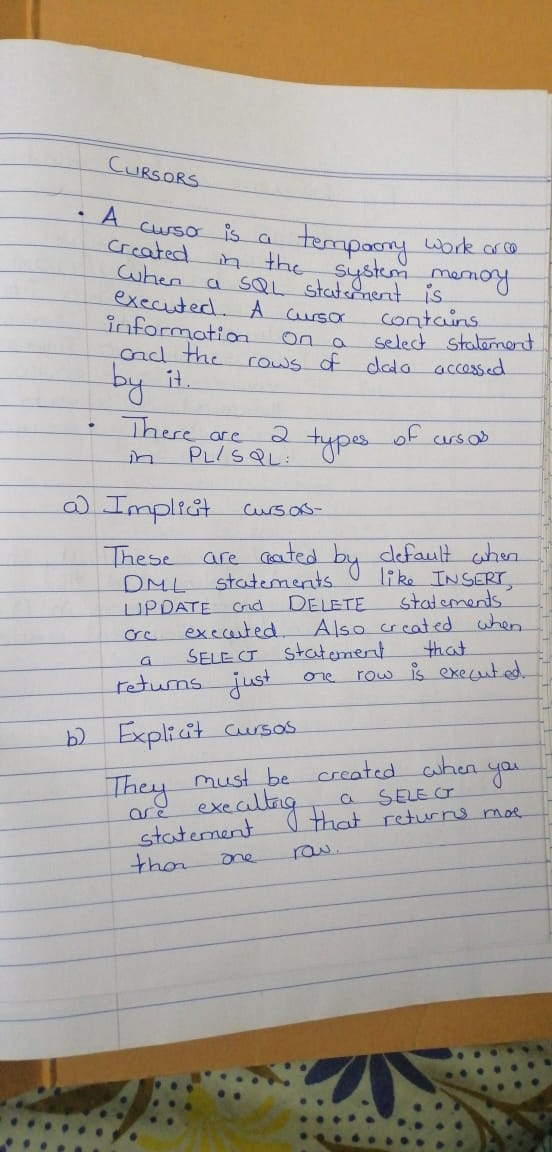 CURSORS
• A cursor is a temporary work area
created in the system memory
when a SQL statement is
executed. A cursor contains
information on a select statement
and the rows of data accessed
by it.
• There are 2 types of cursors
in PL/SQL:
a) Implicit cursors-
These are created by default when
DML statements like INSERT,
UPDATE and DELETE statements
are executed. Also created when
a SELECT statement that
returns just one row is executed.
b) Explicit cursors
They must be created when you
are executing a SELECT
statement that returns more
than one row.